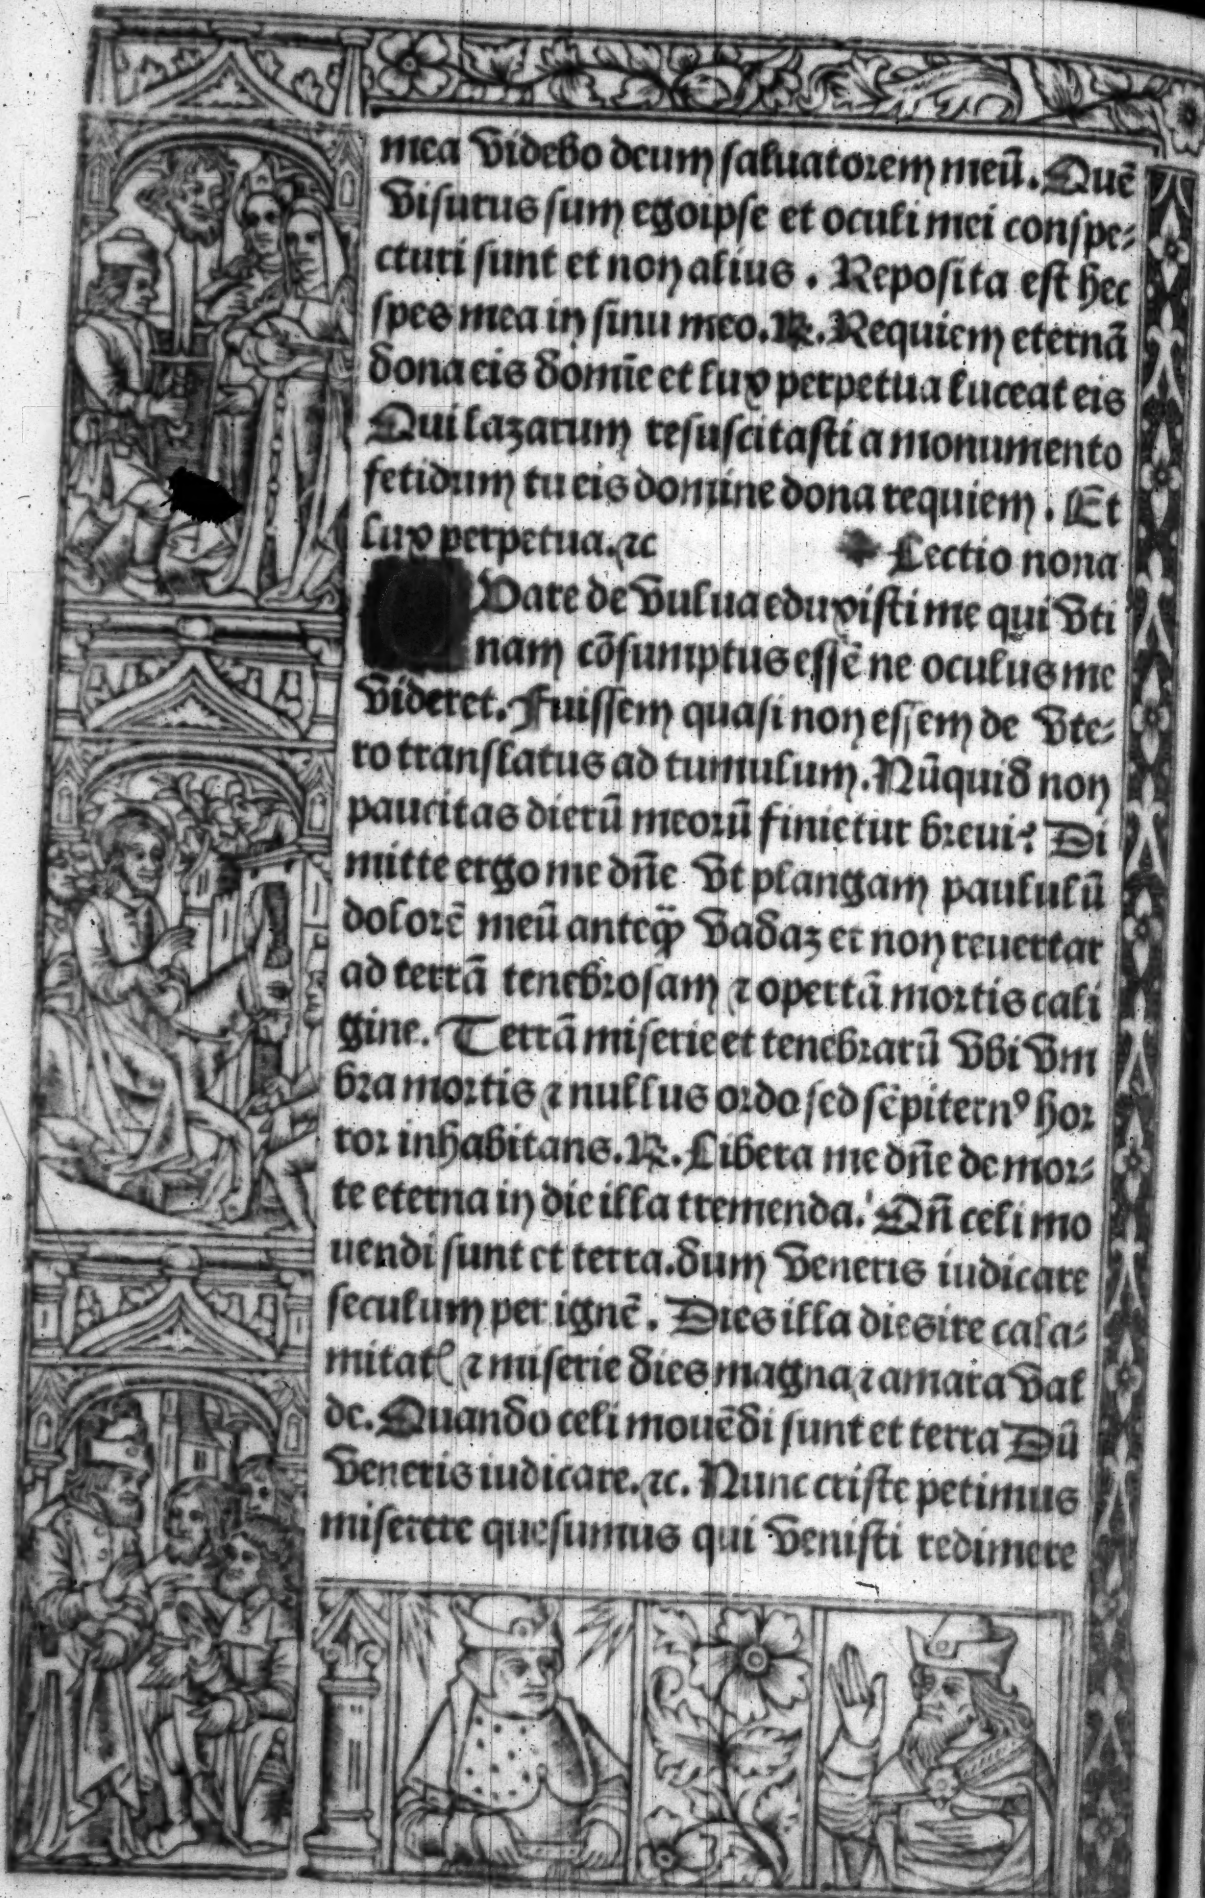 mea videbo deum saluatorem meū. Quē
visurus sum egoipse et oculi mei conspe-
cturi sunt et non alius. Reposita est hec
spes mea in sinu meo. ℟. Requiem eternā
dona eis domīe et lux perpetua luceat eis
Qui lazarum resuscitasti a monumento
fetidum tu eis domine dona requiem. Et
lux perpetua. ⁊c
Lectio nona
Uare de vulua eduxisti me qui vti
nam cōsumptus essē ne oculus me
videret. Fuissem quasi non essem de vte-
ro translatus ad tumulum. Nūquid non
paucitas dierū meorū finietur breui? Di
mitte ergo me dn̄e vt plangam paululū
dolorē meū anteq̄ȝ vadaȝ et non reuertar
ad terrā tenebrosam ⁊ opertā mortis cali
gine. Terrā miserie et tenebrarū vbi vm
bra mortis ⁊ nullus ordo sed sēpiternꝰ hor
ror inhabitans. ℟. Libera me dn̄e de mor-
te eterna in die illa tremenda. Qn̄ celi mo
uendi sunt et terra. dum veneris iudicare
seculum per ignē. Dies illa dies ire cala-
mitatꝭ ⁊ miserie dies magna ⁊ amara val
de. Quando celi mouēdi sunt et terra Dū
veneris iudicare. ⁊c. Nunc criste petimus
miserere quesumus qui venisti redimere